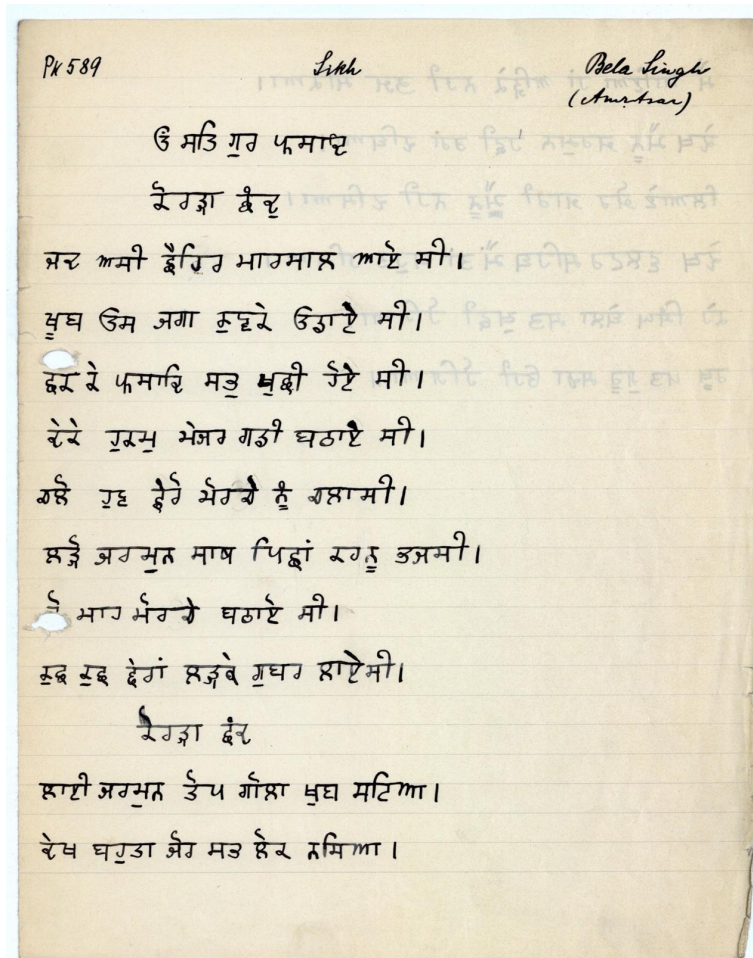 PK 589 Sikh Bela Singh
(Amritsar)
ੳ ਸਤਿ ਗੁਰ ਪਰਸਾਦਿ
ਕੋਰੜਾ ਛੰਦੁ
ਜਦ ਅਸੀ ਛੈਹਿਰ ਮਾਰਸਾਲ ਆਏ ਸੀ।
ਖੂਬ ਓਸ ਜਗਾ ਓਡਾਏ ਸੀ।
ਛਕ ਕੇ ਪਰਸਾਦਿ ਸਭੁ ਖੁਛੀ ਹੋਏ ਸੀ।
ਦੇਕੇ ਹੁਕਮੁ ਮੇਜਰ ਗਡੀ ਬਠਾਏ ਸੀ।
ਚਲੋ ਹੁਣ ਛੇਰੋ ਮੋਰਚੇ ਨੂੰ ਚਲਾਸੀ।
ਲੜੋ ਜਰਮੁਨ ਸਾਥ ਪਿਛਾਂ ਭਜਸੀ।
ਮਾਰ ਮੋਰਚੇ ਬਠਾਏ ਸੀ।
ਕੁਛ ਕੁਛ ਛੇਰਾਂ ਲੜਕੇ ਗੁਬਰ ਲਾਏਸੀ।
ਕੋਰੜਾ ਛੰਦ
ਲਾਈ ਜਰਮੁਨ ਤੋਪ ਗੋਲਾ ਖੂਬ ਸਟਿਆ।
ਦੇਖ ਬਹੁਤਾ ਜੋਰ ਸਭ ਲੋਕ ਨਸਿਆ।